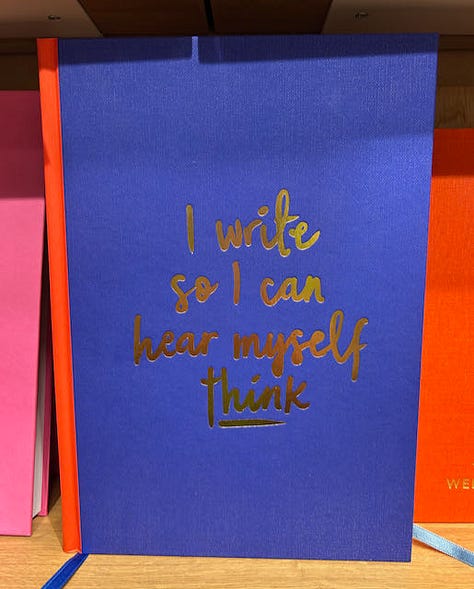 I write
so I can
hear myself
think